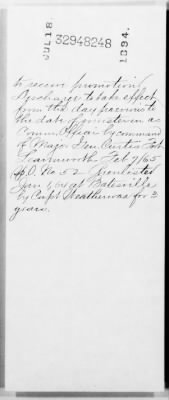 JUL 18 32948248 1894.
to receive promotion
Discharge to take effect
from the day previous to
the date of muster in as
Comm. Officer by command
of Major Gen. Curtis Ft
Leavenworth Feb 7/65
S.O. No 52 Reenlisted
Jan 1, 64 at Batesville
by Capt Weatherwax for 3
years.